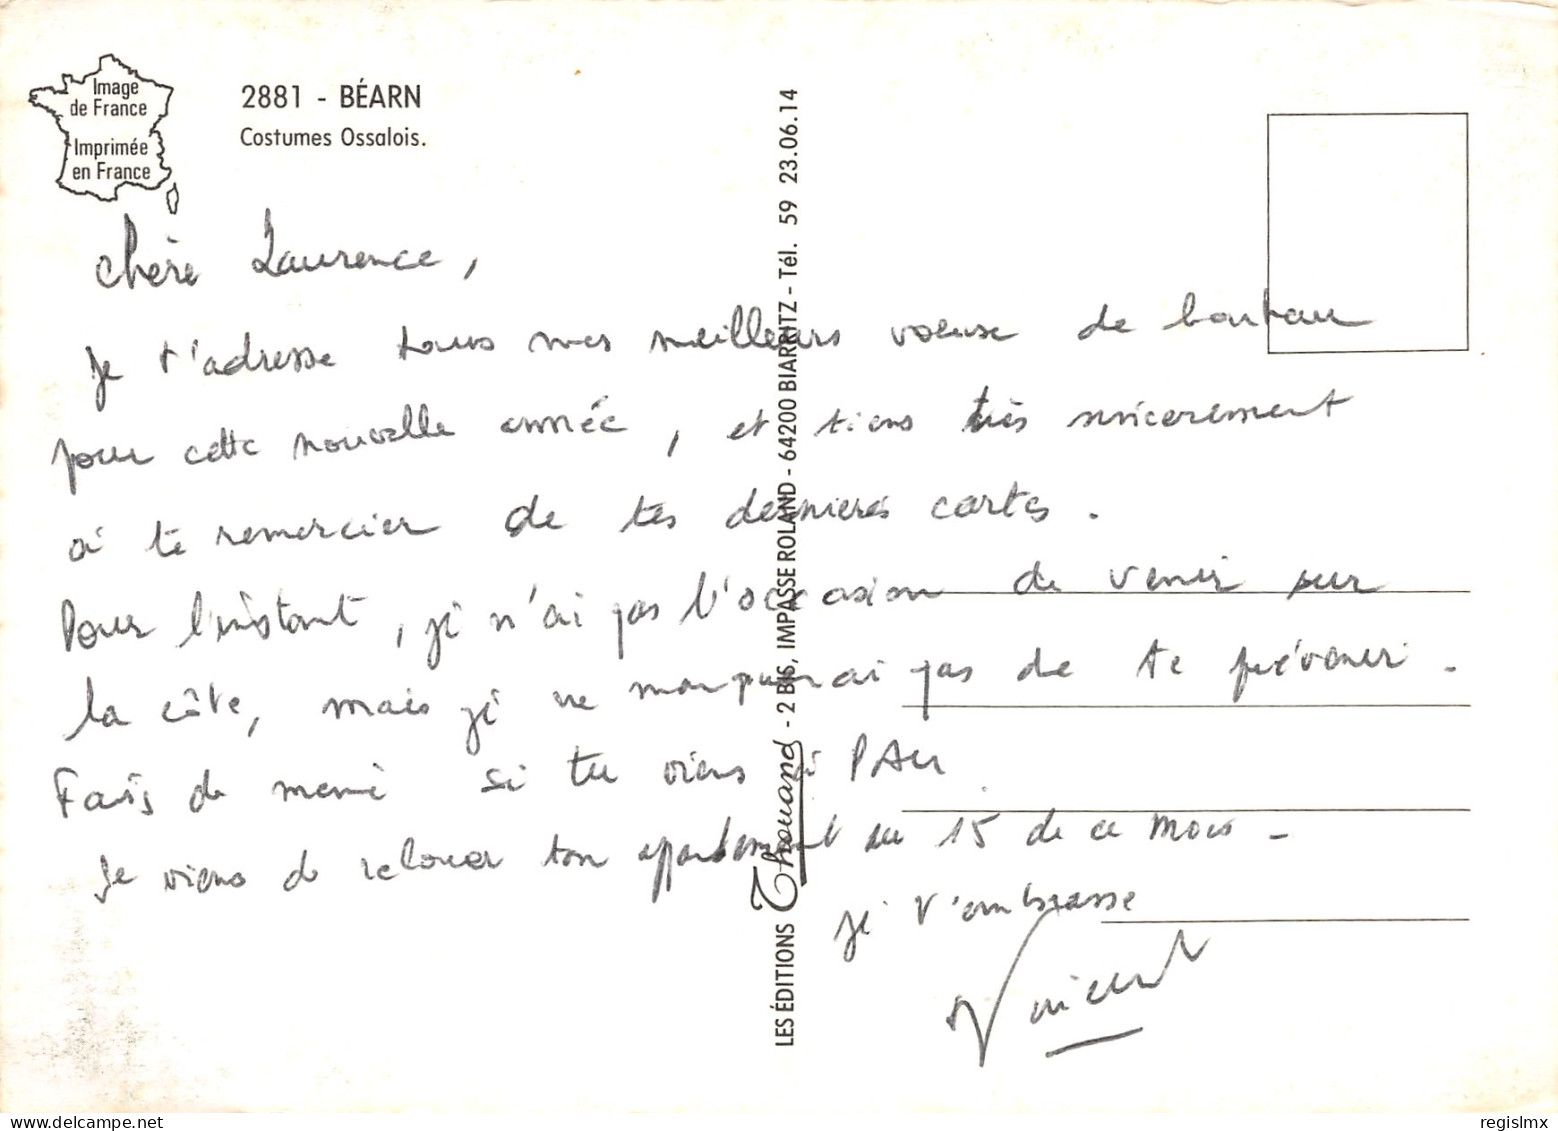 Image
de France
Imprimée
en France
2881 - BÉARN
Costumes Ossalois.
Chère Laurence,
Je t'adresse tous mes meilleurs voeux de bonheur
pour cette nouvelle année, et tiens très sincèrement
à te remercier de tes dernières cartes.
Pour l'instant, je n'ai pas l'occasion de venir sur
la côte, mais je ne manquerai pas de te prévenir.
Fais de même si tu viens à PAU
Je viens de relouer ton appartement au 15 de ce mois -
je t'embrasse
Vincent
LES ÉDITIONS Thouand - 2 BIS, IMPASSE ROLAND - 64200 BIARRITZ - Tél. 59 23.06.14
delcampe.net
regislmx